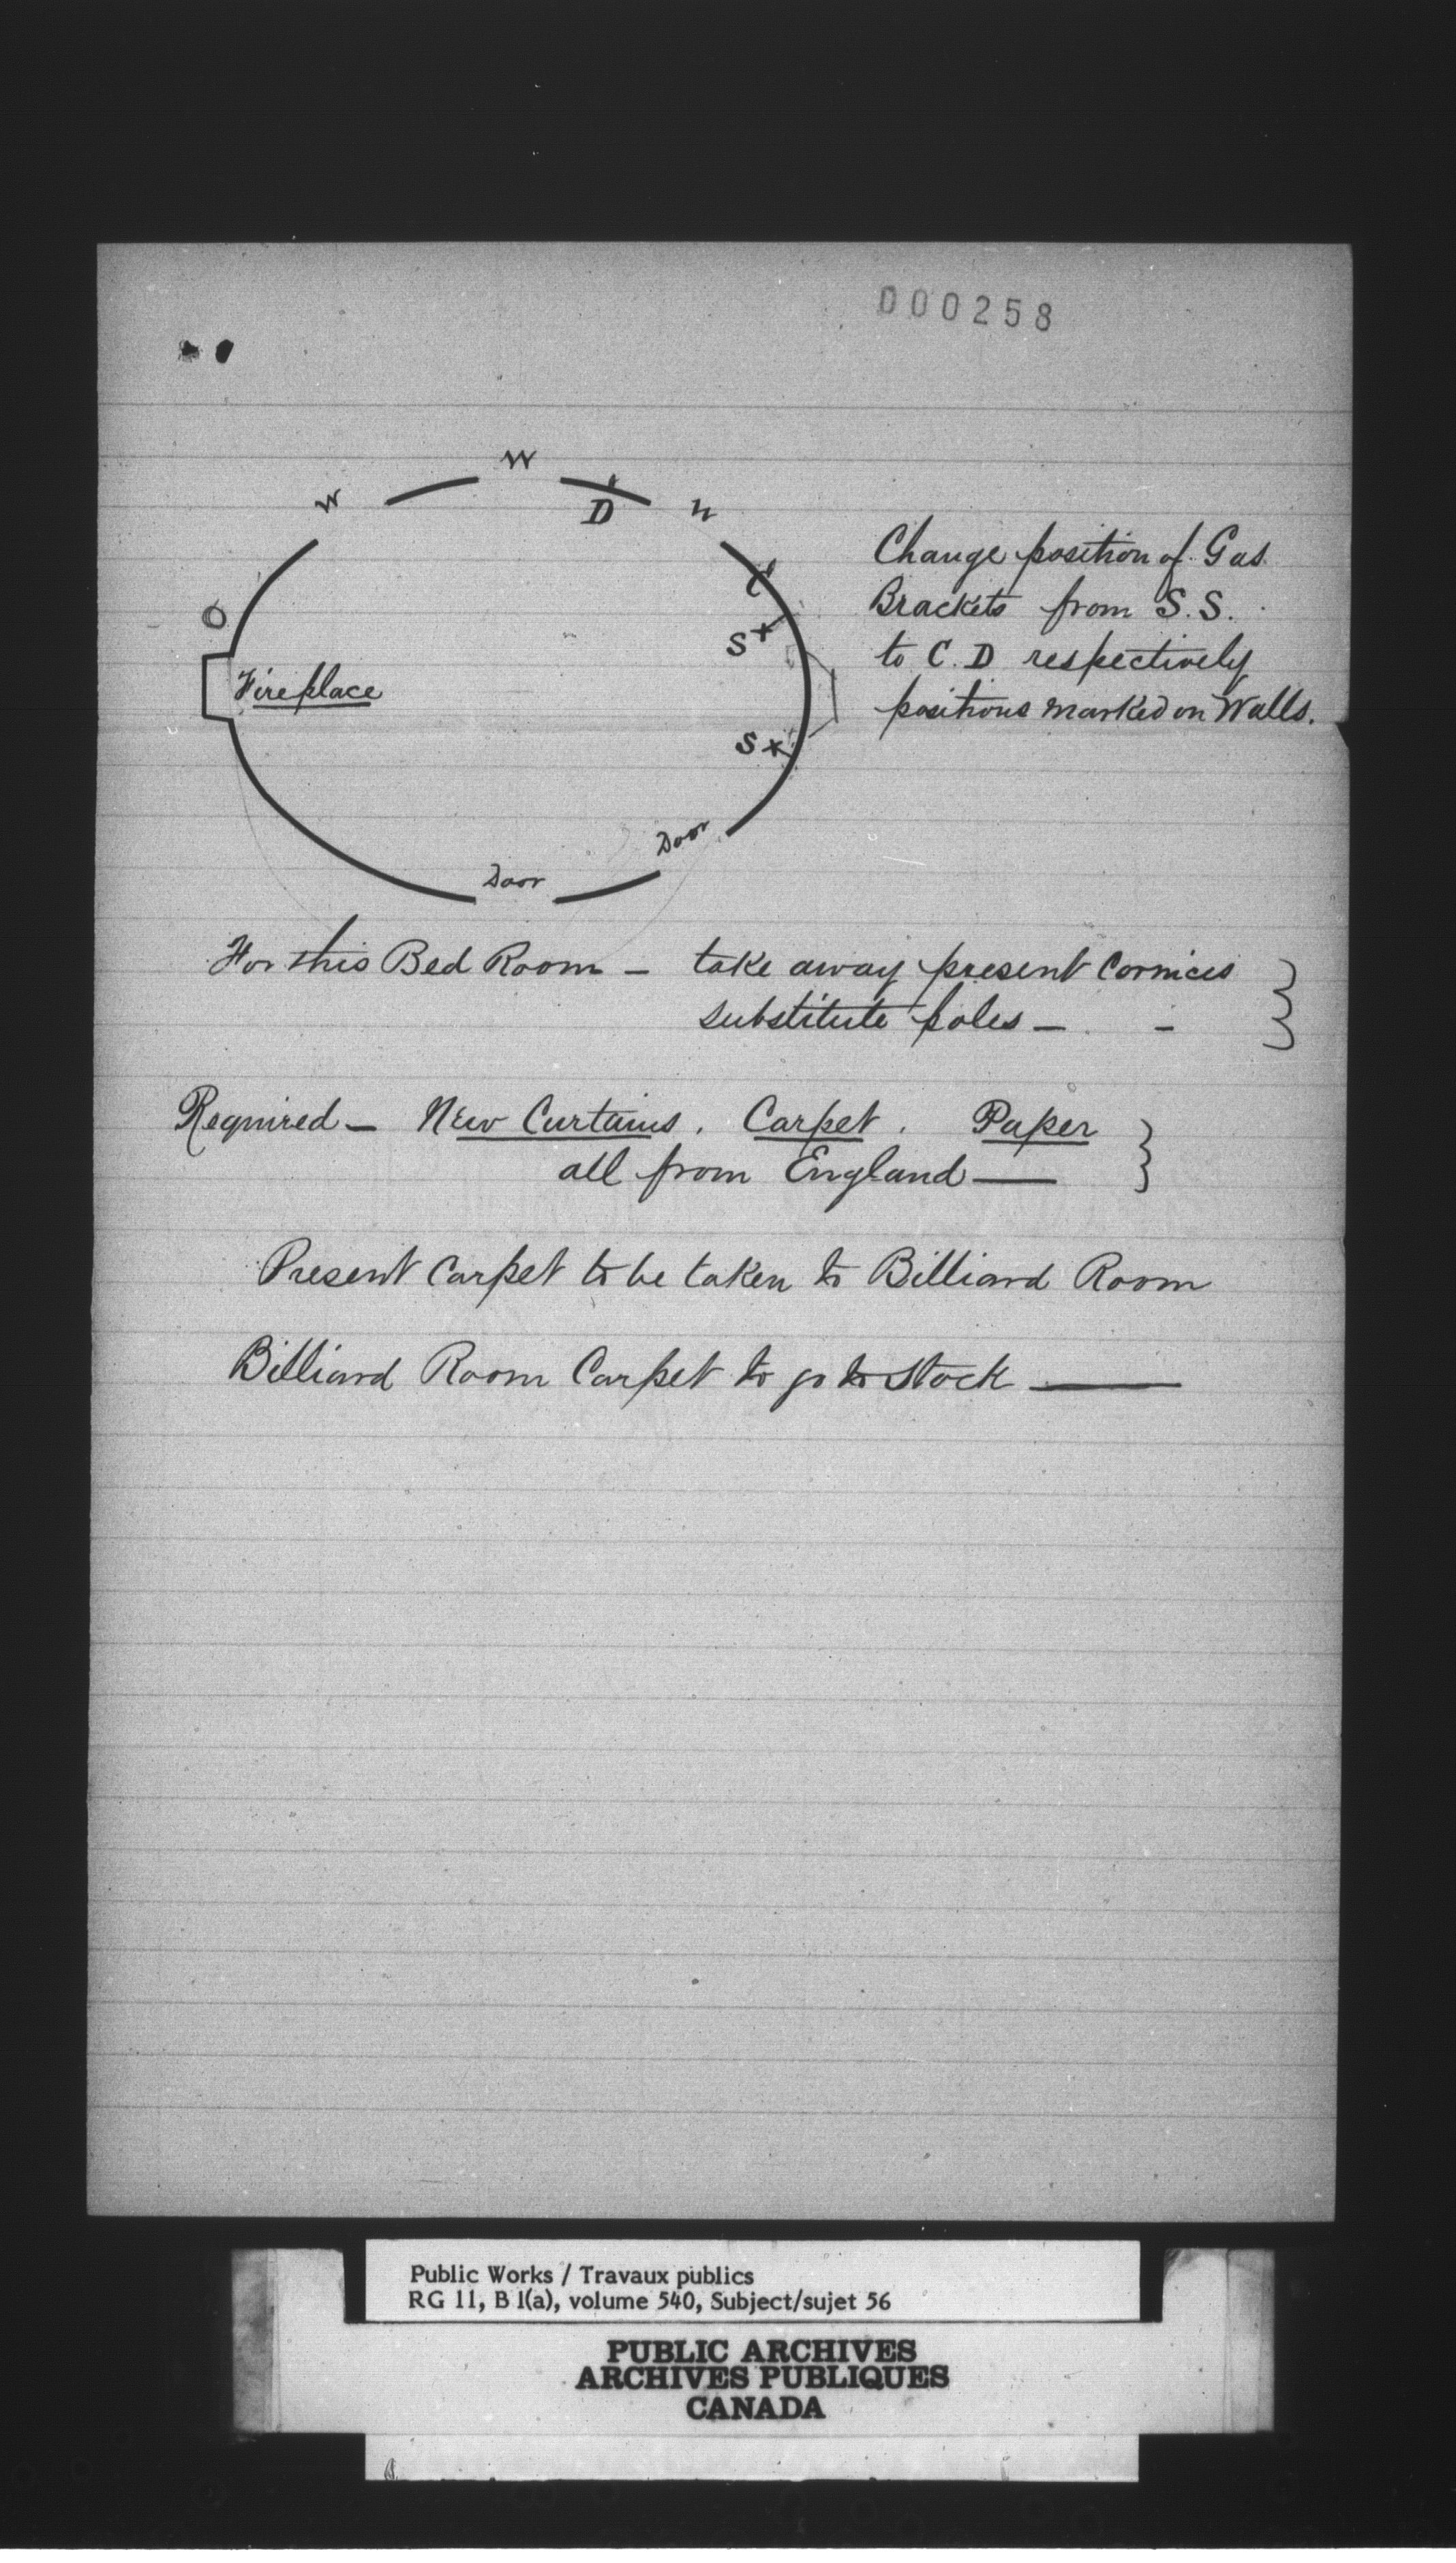 000258
W
W
D
W
C
O
S x
Fireplace
S x
Door
Door
Change position of Gas
Brackets from S.S.
to C. D respectively
positions marked on Walls.
For this Bed Room — take away present Cornices
substitute poles — -
Required — New Curtains. Carpet. Paper
all from England —
Present Carpet to be taken to Billiard Room
Billiard Room Carpet to go to Stock —
Public Works / Travaux publics
RG 11, B 1(a), volume 540, Subject/sujet 56
PUBLIC ARCHIVES
ARCHIVES PUBLIQUES
CANADA